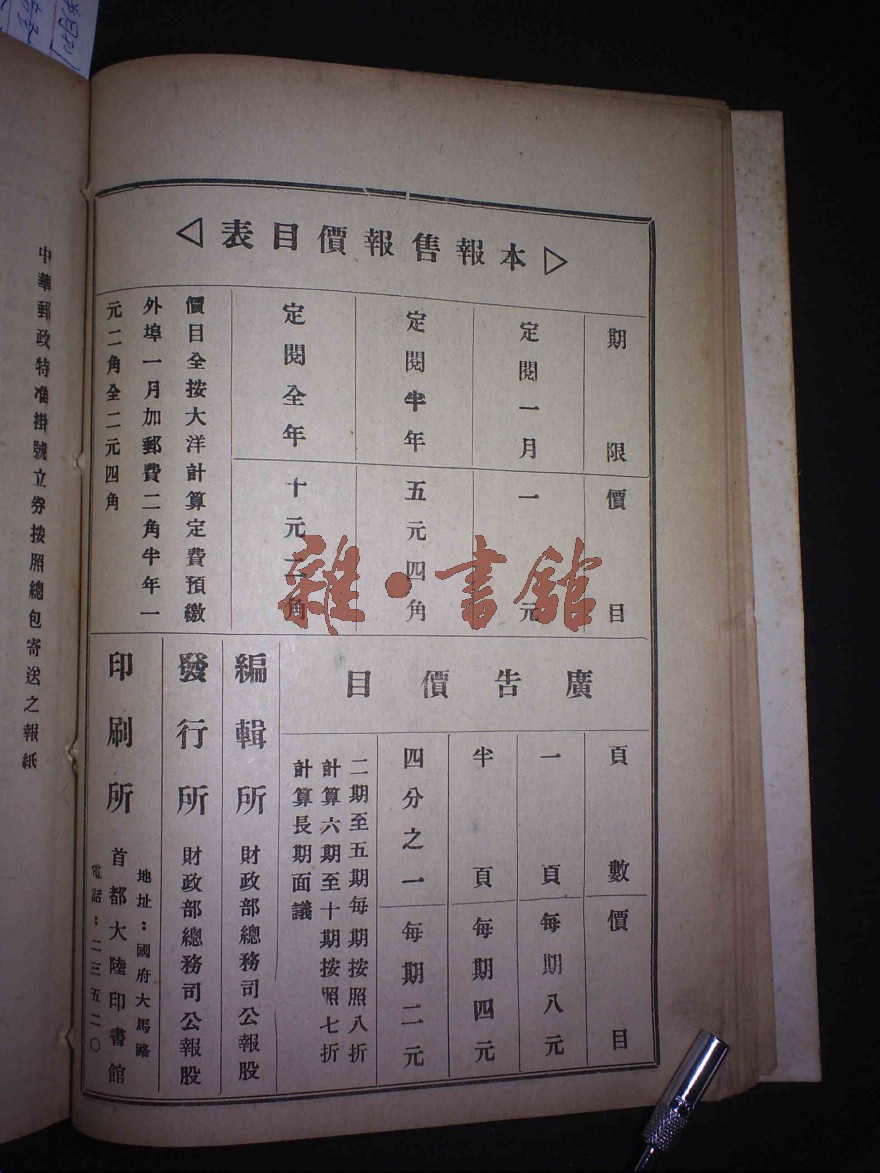 ▷本報售報價目表◁
期限
價目
定閱一月
一元
定閱半年
五元四角
定閱全年
十元二角
價目全按大洋計算定費預繳
外埠一月加郵費二角半年一
元二角全二元四角
廣告價目
頁數
價目
一頁
每期八元
半頁
每期四元
四分之一
每期二元
二期至五期每期按照八折
計算六期至十期按照七折
計算長期面議
編輯所 財政部總務司公報股
發行所 財政部總務司公報股
印刷所 首都大陸印書館
地址：國府大馬路
電話：二三五二〇
中華郵政特准掛號立券按照總包寄送之報紙
雜·書館